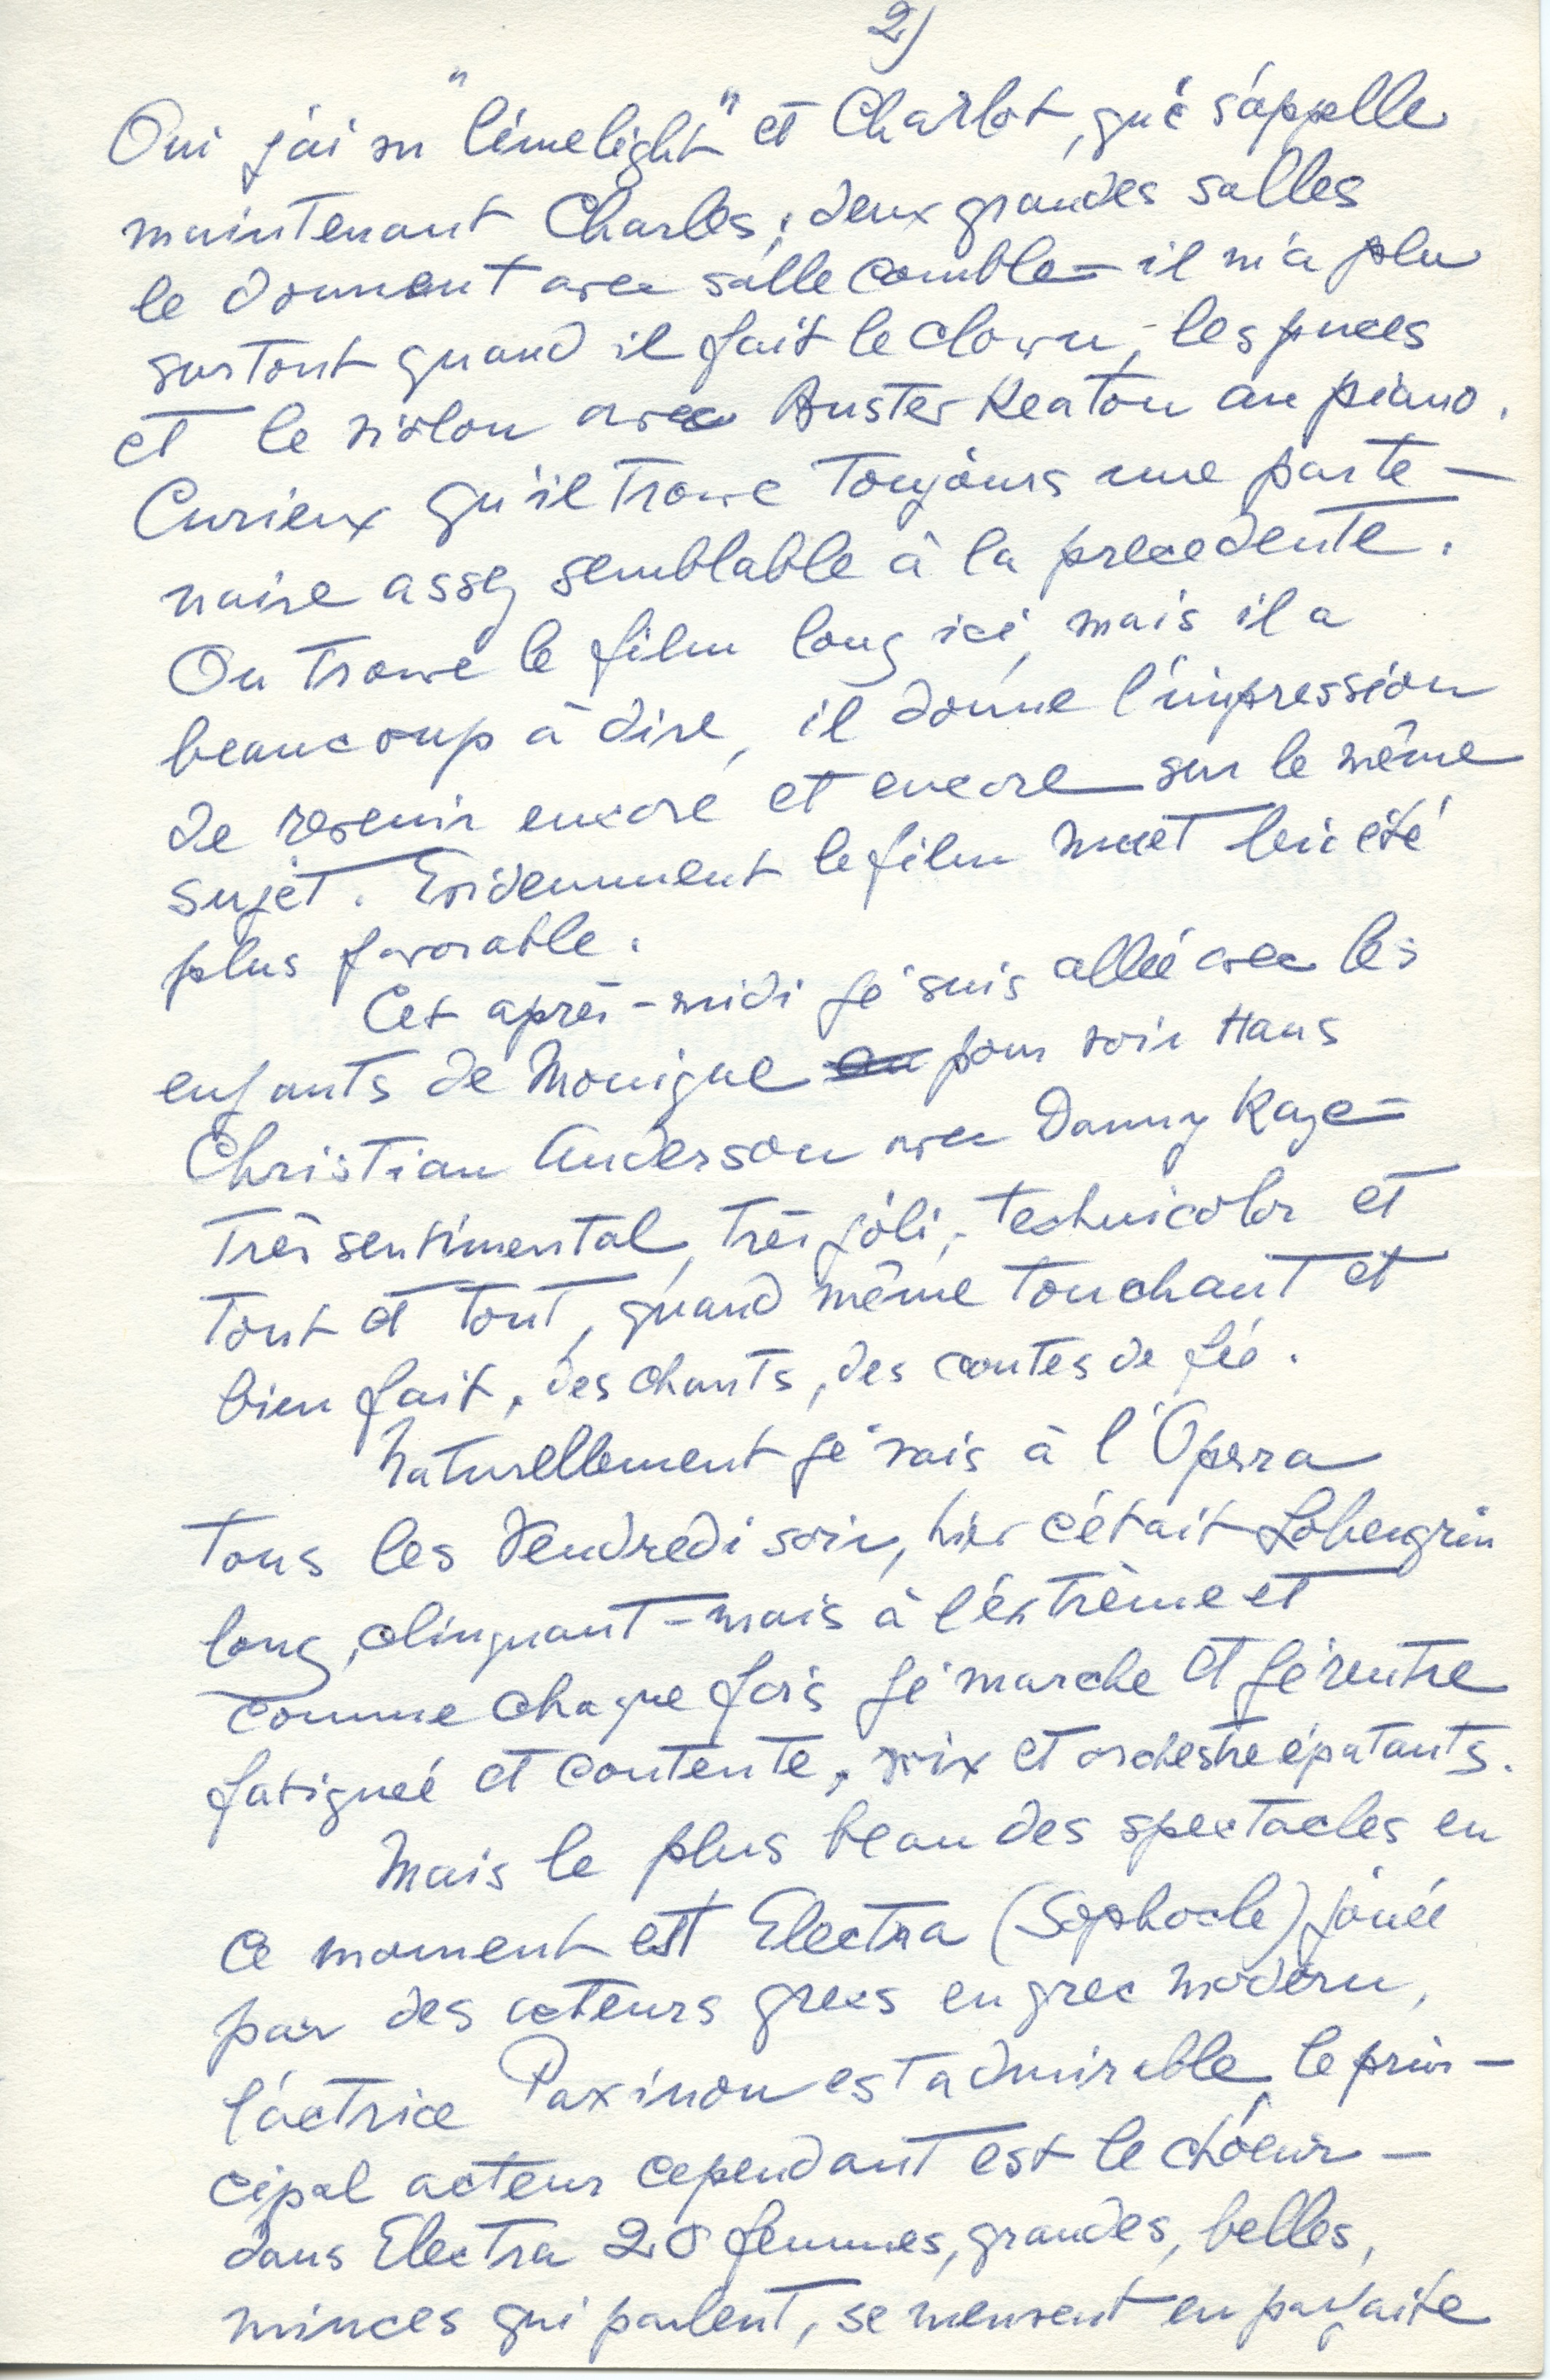 2)
Oui j'ai vu "limelight" et Charlot, qui s'appelle
maintenant Charles, deux grandes salles
le donnent avec salle comble – il m'a plu
surtout quand il fait le clown, les puces
et le violon avec Buster Keaton au piano.
Curieux qu'il trouve toujours une parte-
naire assez semblable à la precedente.
On trouve le film long ici, mais il a
beaucoup à dire, il donne l'impression
de revenir encore et encore sur le même
sujet. Evidemment le film muet lui été
plus favorable.
Cet après-midi je suis allée avec les
enfants de Monique pour voir Hans
Christian Anderson avec Danny Kaye –
très sentimental, très joli, technicolor et
tout et tout, quand même touchant et
bien fait, des chants, des contes de fée.
Naturellement je vais à l'Opera
tous les Vendredi soir, hier c'était Lohengrin
long, clinquant – mais à l'extrème et
comme chaque fois je marche et je rentre
fatiguée et contente, voix et orchestre épatants.
Mais le plus beau des spectacles en
ce moment est Electra (Sophocle) jouée
par des acteurs grecs en grec modern,
l'actrice Paxinou est admirable, le prin-
cipal acteur cependant est le choeur –
dans Electra 20 femmes, grandes, belles,
minces qui parlent, se meuvent en parfaite